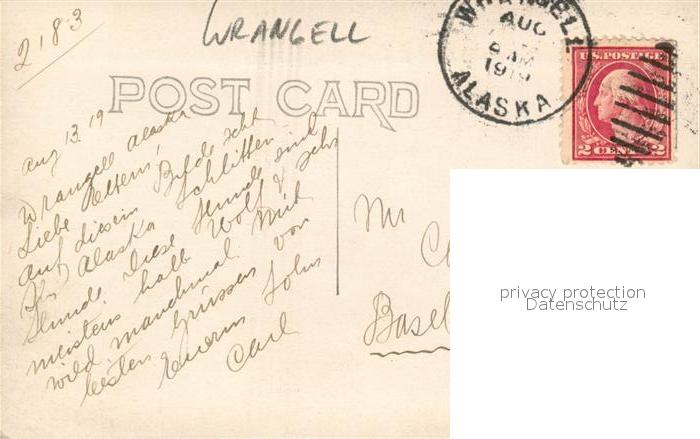 2183
WRANGELL
WRANGELL
AUG
8 AM
1919
ALASKA
U.S. POSTAGE
2 CENTS 2
POST CARD
Aug 13. 19
Wrangell Alaska
Liebe Eltern!
Auf diesem Bilde seht
Ihr Alaska Schlitten
Hunde. Diese Hunde sind
meistens halb Wolf & sehr
wild manchmal. Mit
besten Grüssen von
Euerm Sohn
Carl
Mr
C
Basel
privacy protection
Datenschutz